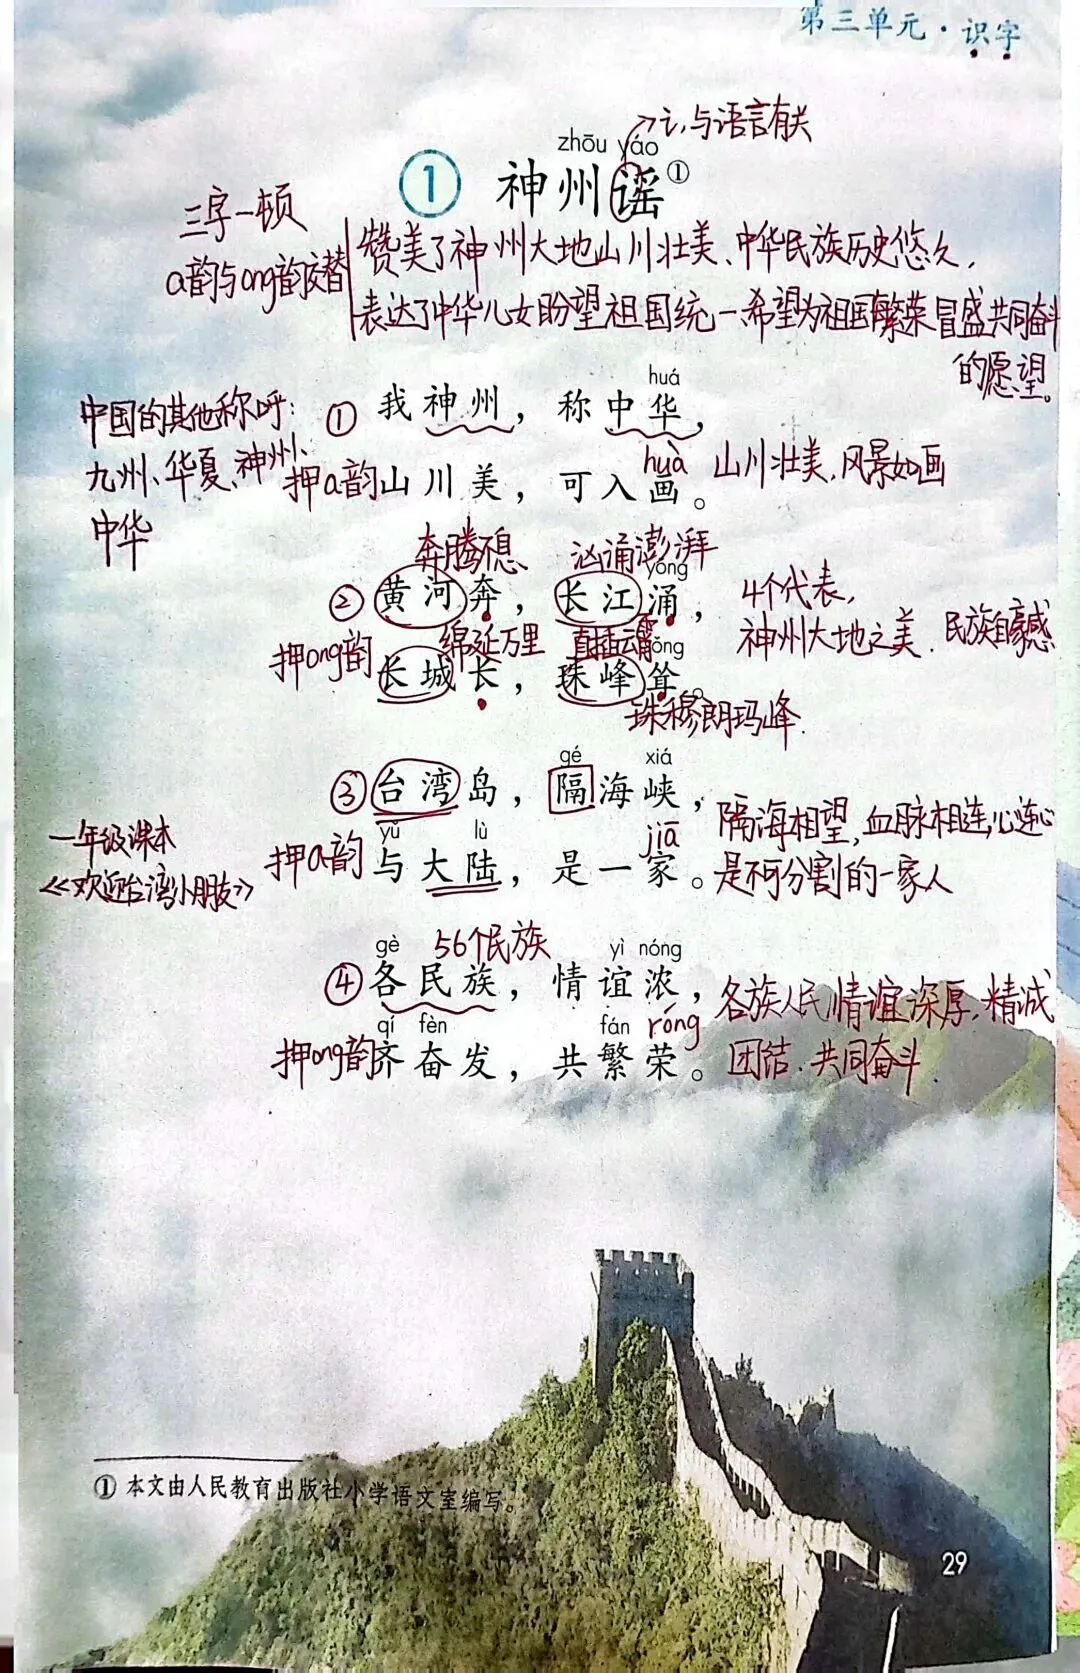 第三单元·识字
讠,与语言有关
zhōu yáo
1 神州谣①
三字一顿
a韵与ong韵交替
赞美了神州大地山川壮美、中华民族历史悠久,
表达了中华儿女盼望祖国统一希望为祖国繁荣冒盛共同奋斗
的愿望。
huá
中国的其他称呼:
九州、华夏、神州、
中华
① 我神州,称中华,
huà
押a韵 山川美,可入画。 山川壮美,风景如画
奔腾不息 汹涌澎湃
yǒng
② 黄河奔,长江涌,
4个代表,
神州大地之美、民族自豪感
绵延万里 直插云霄
sǒng
押ong韵 长城长,珠峰耸。
珠穆朗玛峰
gé xiá
③ 台湾岛,隔海峡,
yǔ lù jiā
押a韵 与大陆,是一家。
隔海相望,血脉相连,心连心
是不可分割的一家人
一年级课本
《欢迎台湾小朋友》
56个民族
gè yì nóng
④ 各民族,情谊浓,
qí fèn fán róng
押ong韵 齐奋发,共繁荣。
各族人民情谊深厚,精诚
团结、共同奋斗
① 本文由人民教育出版社小学语文室编写。
29